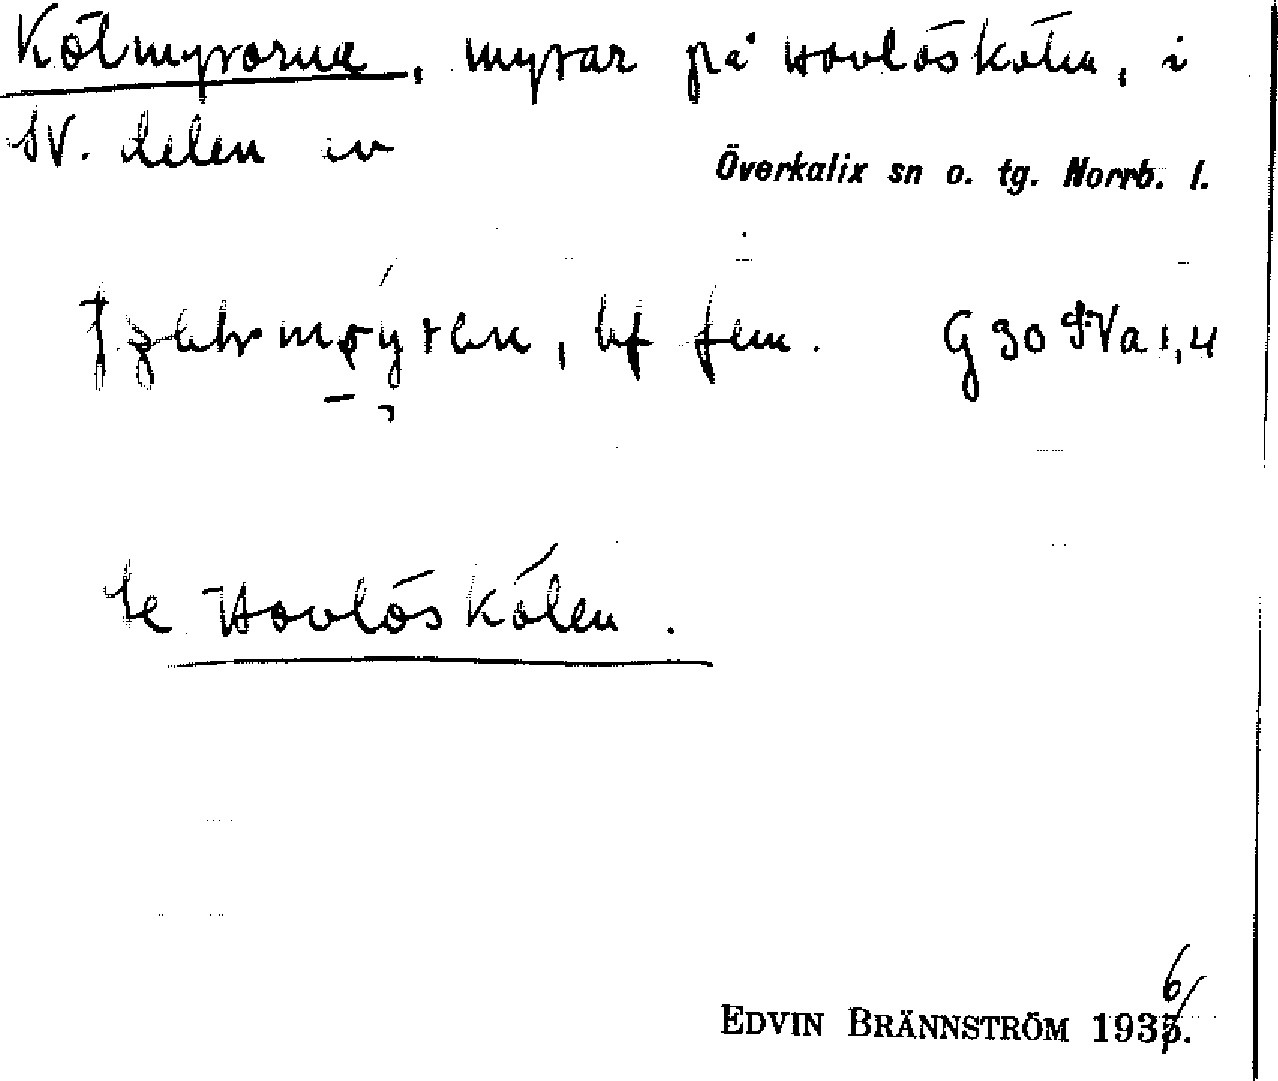 Kölmyrorna, myrar på Hovlöskölen, i
SV. delen av
Överkalix sn o. tg. Norrb. l.
, bf fem. G 30 SVa 1,4
Se Hovlöskölen.
EDVIN BRÄNNSTRÖM 1936.